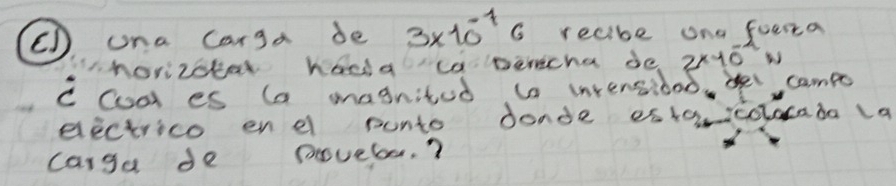 EJ) una carga de 3x10⁻⁷ C recibe una fuerza
horizotal hacia la Derecha de 2x10⁻⁴ N
¿ Cual es la magnitud la intensidad del campo
eléctrico en el punto donde esta colocada la
carga de prueba.?